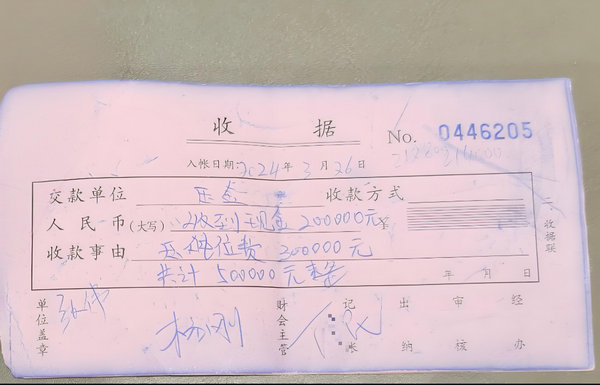 收 据
No. 0446205
入帐日期:2024年3月26日
交款单位 压金 收款方式
人民币(大写) 收到现金 200000元 ¥
收款事由 压 位费 300000元
共计 500000元
年 月 日
二 收据联
单位盖章 财会主管 记帐 出纳 审核 经办